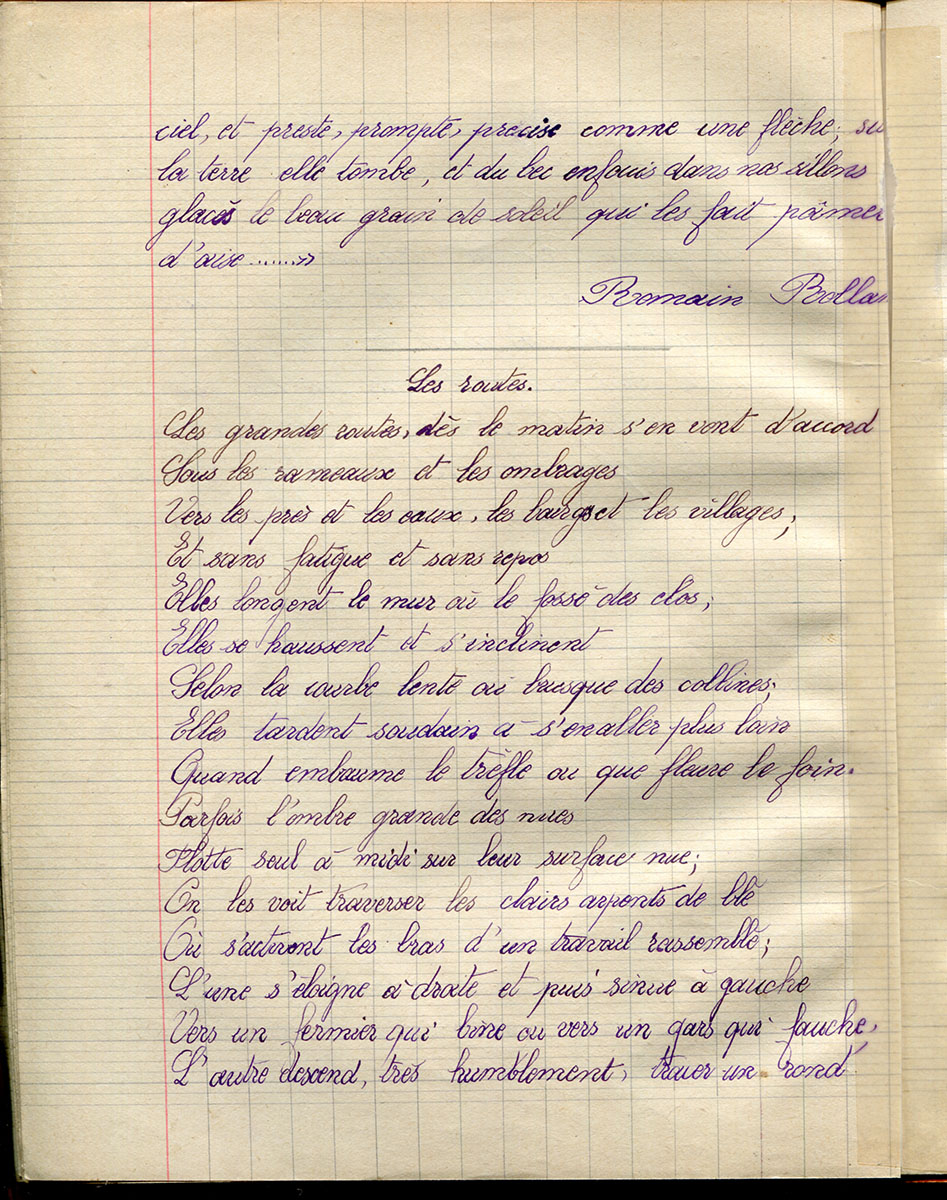 ciel, et preste, prompte, précise comme une flèche, su
la terre elle tombe, et du bec enfouis dans nos sillons
glacés le beau grain de soleil qui les fait pâmer
d'aise ........»
Romain Rollan
Les routes.
Les grandes routes, dès le matin s'en vont d'accord
Sous les rameaux et les ombrages
Vers les près et les eaux, les bourgs et les villages,
Et sans fatigue et sans repos
Elles longent le mur où le fossé des clos;
Elles se haussent et s'inclinent
Selon la courbe lente ou brusque des collines;
Elles tardent soudain à s'en aller plus loin
Quand embaume le trèfle ou que fleure le foin.
Parfois l'ombre grande des nues
Flotte seul à midi sur leur surface nue;
On les voit traverser les clairs arpents de blé
Où s'activent les bras d'un travail rassemblé;
L'une s'éloigne à droite et puis sinue à gauche
Vers un fermier qui bine ou vers un gars qui fauche,
L'autre descend, très humblement, trouer un rond